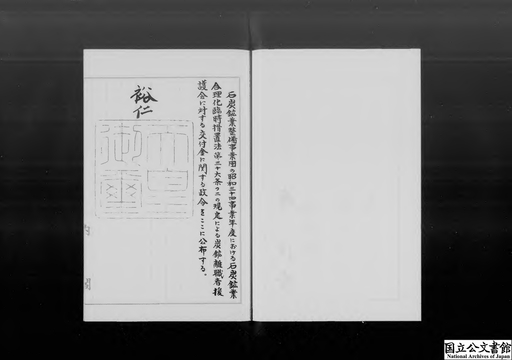 石炭鉱業整備事業団の昭和三十四事業年度における石炭鉱業
合理化臨時措置法第三十六条の二の規定による炭鉱離職者援
護会に対する交付金に関する政令をここに公布する。
裕仁
天皇
御璽
国立公文書館
National Archives of Japan